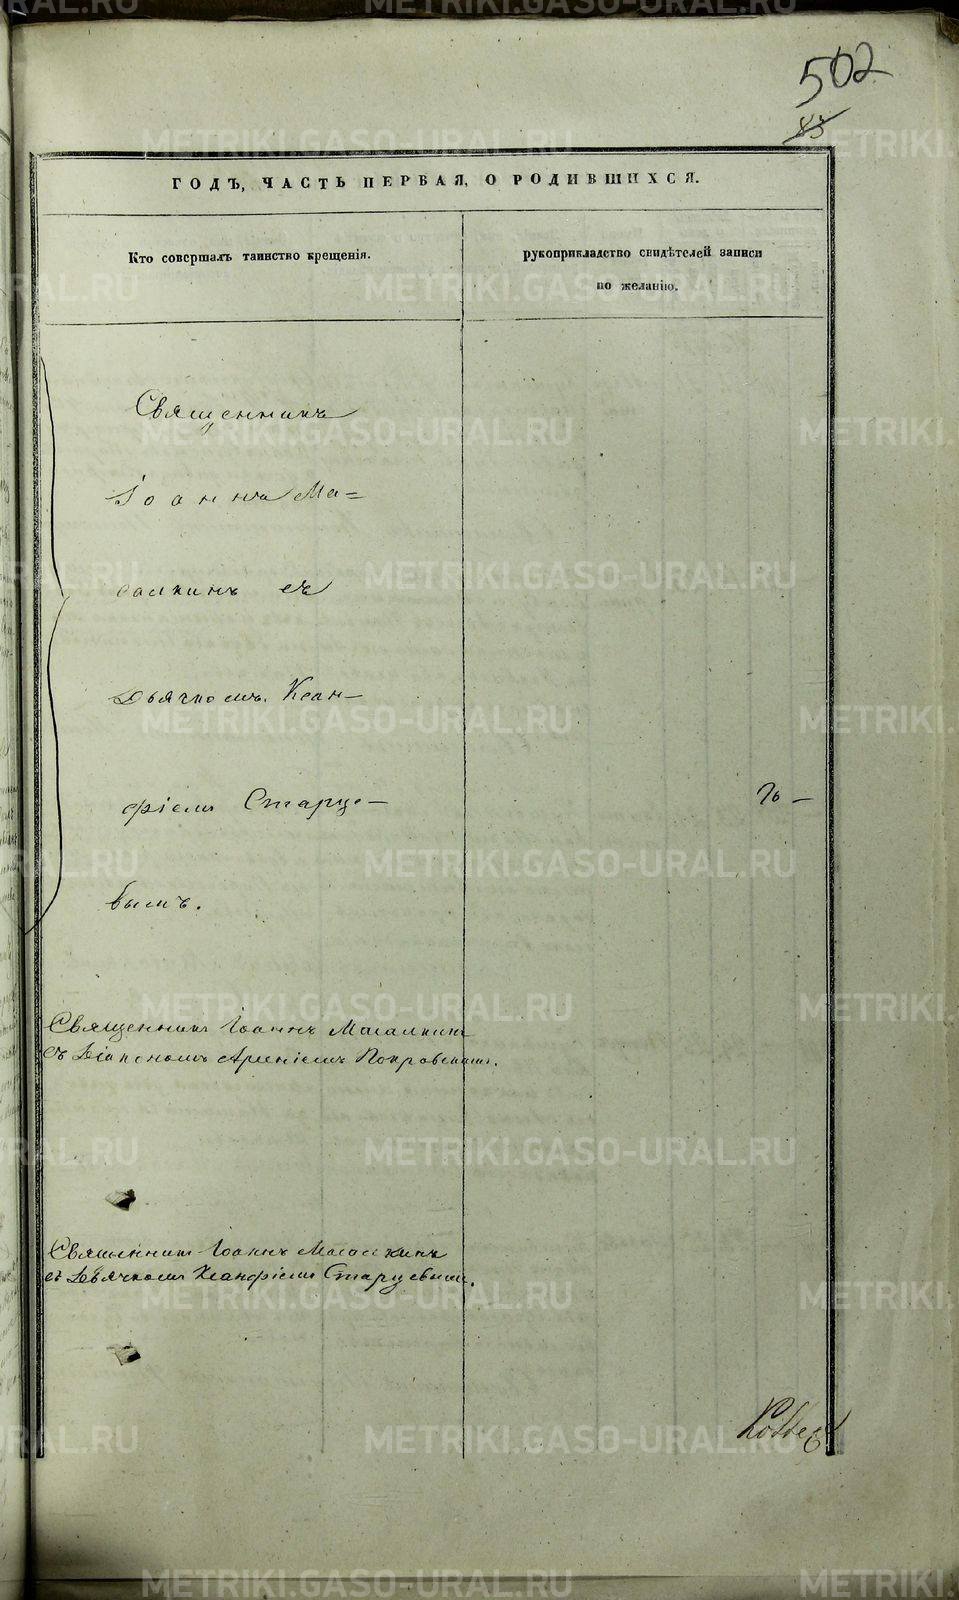 502
83
ГОДЪ, ЧАСТЬ ПЕРВАЯ, О РОДИВШИХСЯ.
Кто совершалъ таинство крещенія.
рукоприкладство свидѣтелей записи
по желанію.
Священникъ
Іоаннъ Ма=
салкинъ съ
Дьячкомъ Ксан-
фіемъ Старце-
вымъ.
Священникъ Іоаннъ Масалкинъ
съ Діакономъ Арсеніемъ Покровскимъ.
Священникъ Іоаннъ Масалкинъ
съ Дьячкомъ Ксанфіемъ Старцевымъ.
METRIKI.GASO-URAL.RU